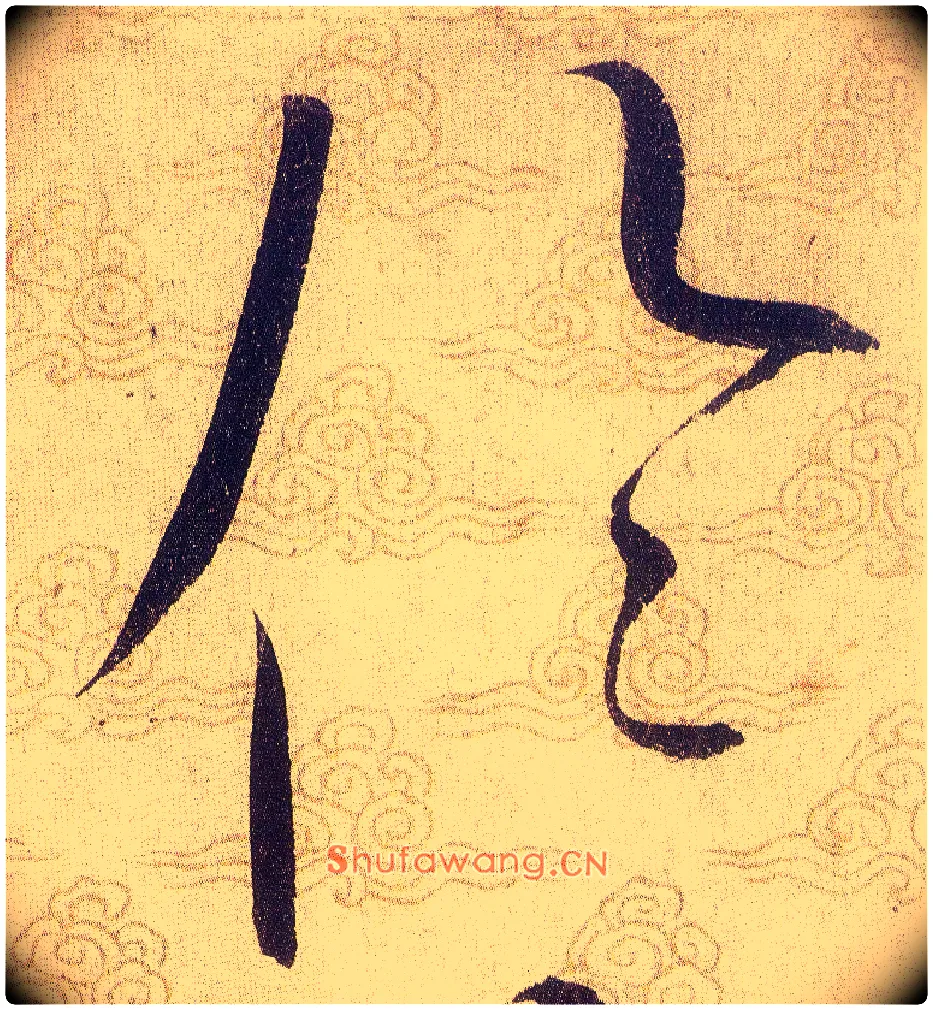 信
Shufawang.CN